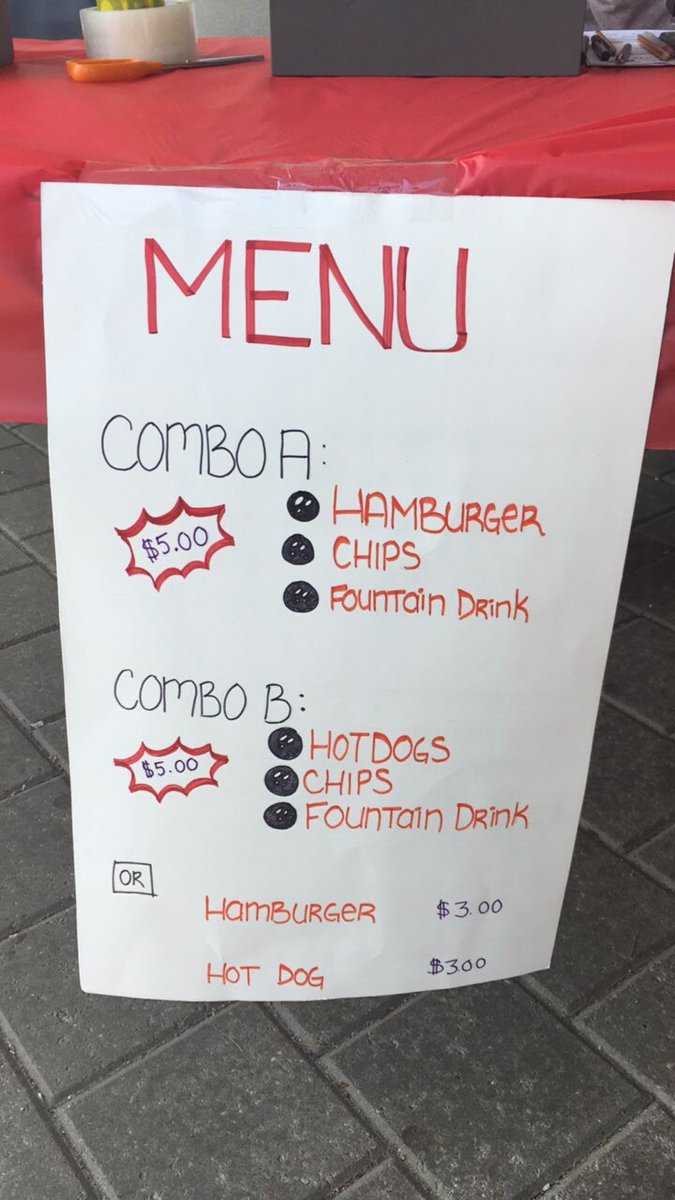 MENU
COMBO A:
$5.00
HAMBURGER
CHIPS
FOUNTAIN DRINK
COMBO B:
$5.00
HOTDOGS
CHIPS
FOUNTAIN DRINK
OR
HAMBURGER $3.00
HOT DOG $3.00